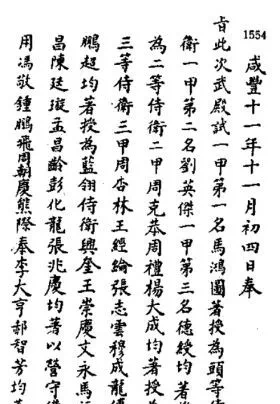 1554
咸豐十一年十一月初四日奉
旨此次武殿試一甲第一名馬鴻圖著授為頭等侍
衛一甲第二名劉英傑一甲第三名德綬均著
為二等侍衛二甲周克奉周禮楊大成均著授為
三等侍衛三甲周杏林王經綸張志雲穆成龍
鵬超均著授為藍翎侍衛興奎王崇慶文永馬
昌陳廷璇孟昌齡彭化龍張兆慶均著以營守
用馮敬鍾鵬飛周朝慶熊際泰李大亨郝智芳均